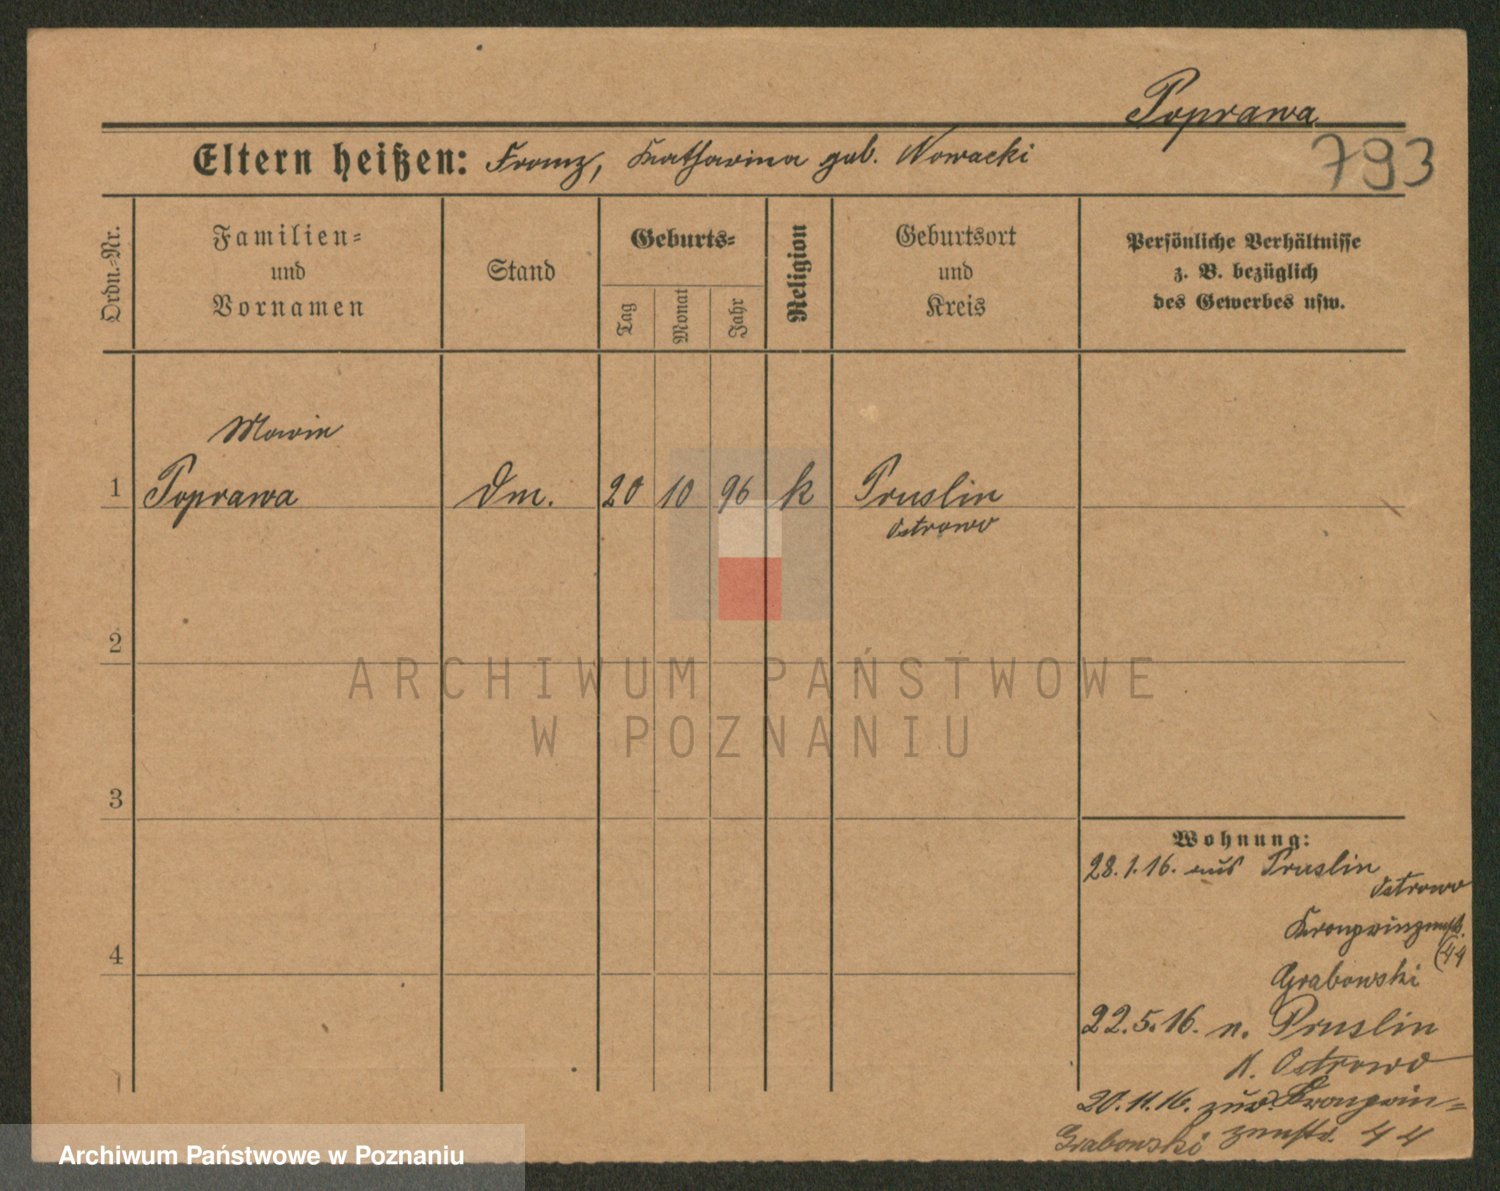 Poprawa
793
Eltern heißen: Franz, Katharina geb. Nowacki
Ordn.-Nr.
Familien-
und
Vornamen
Stand
Geburts-
Tag
Monat
Jahr
Religion
Geburtsort
und
Kreis
Persönliche Verhältnisse
z. B. bezüglich
des Gewerbes usw.
Marie
1 Poprawa Dm. 20 10 96 k Pruslin
Ostrowo
2
3
4
Wohnung:
28.1.16. aus Pruslin
Ostrowo
Kronprinzenstr.
(44
Grabowski
22.5.16. n. Pruslin
K. Ostrowo
20.11.16. zur. Kronprin-
Grabowski zenstr. 44
ARCHIWUM PAŃSTWOWE
W POZNANIU
Archiwum Państwowe w Poznaniu